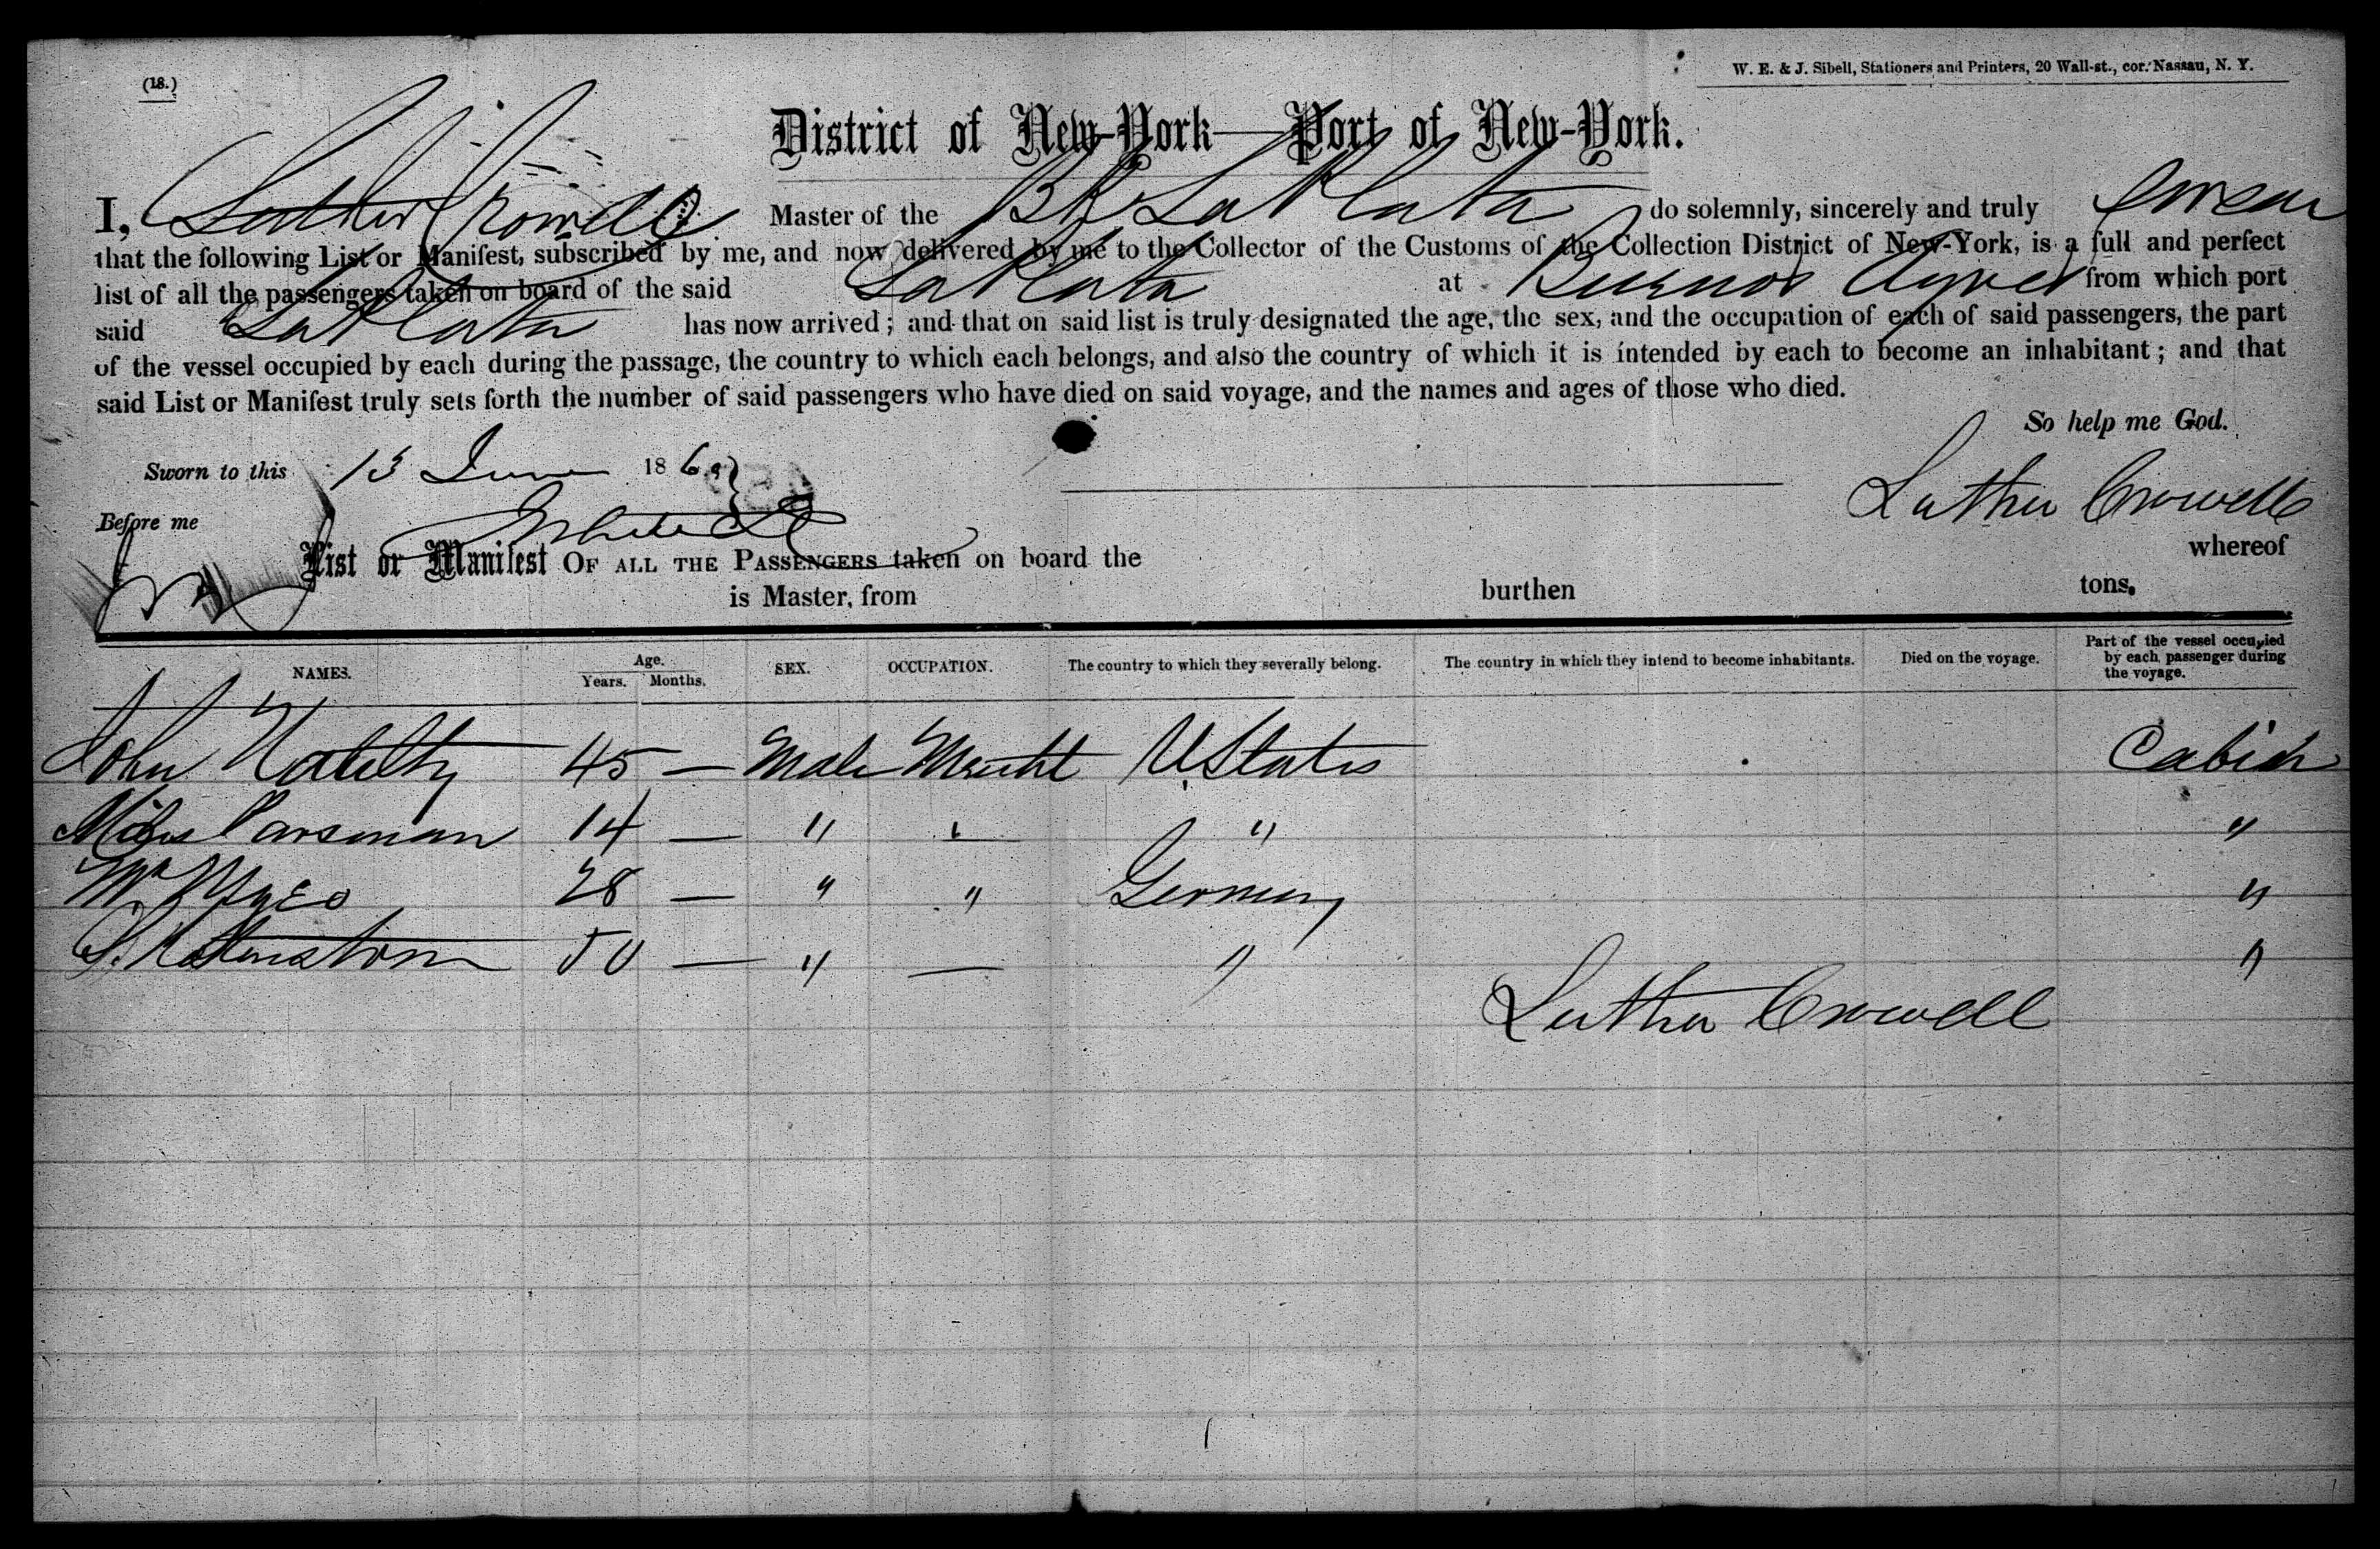 (18.)
W. E. & J. Sibell, Stationers and Printers, 20 Wall-st., cor. Nassau, N. Y.
District of New-York—Port of New-York.
I, Luther Crowell Master of the Bk La Plata do solemnly, sincerely and truly swear
that the following List or Manifest, subscribed by me, and now delivered by me to the Collector of the Customs of the Collection District of New-York, is a full and perfect
list of all the passengers taken on board of the said La Plata at Buenos Ayres from which port
said La Plata has now arrived; and that on said list is truly designated the age, the sex, and the occupation of each of said passengers, the part
of the vessel occupied by each during the passage, the country to which each belongs, and also the country of which it is intended by each to become an inhabitant; and that
said List or Manifest truly sets forth the number of said passengers who have died on said voyage, and the names and ages of those who died.
So help me God.
Sworn to this 15 June 186
Luther Crowell
Before me
List or Manifest OF ALL THE PASSENGERS taken on board the whereof
is Master, from burthen tons.
NAMES. Age. Years. Months. SEX. OCCUPATION. The country to which they severally belong. The country in which they intend to become inhabitants. Died on the voyage. Part of the vessel occupied by each passenger during the voyage.
John 45 — Male Mercht U States Cabin
Parsman 14 — " " "
28 — " " Germany "
S. 50 — " — " "
Luther Crowell